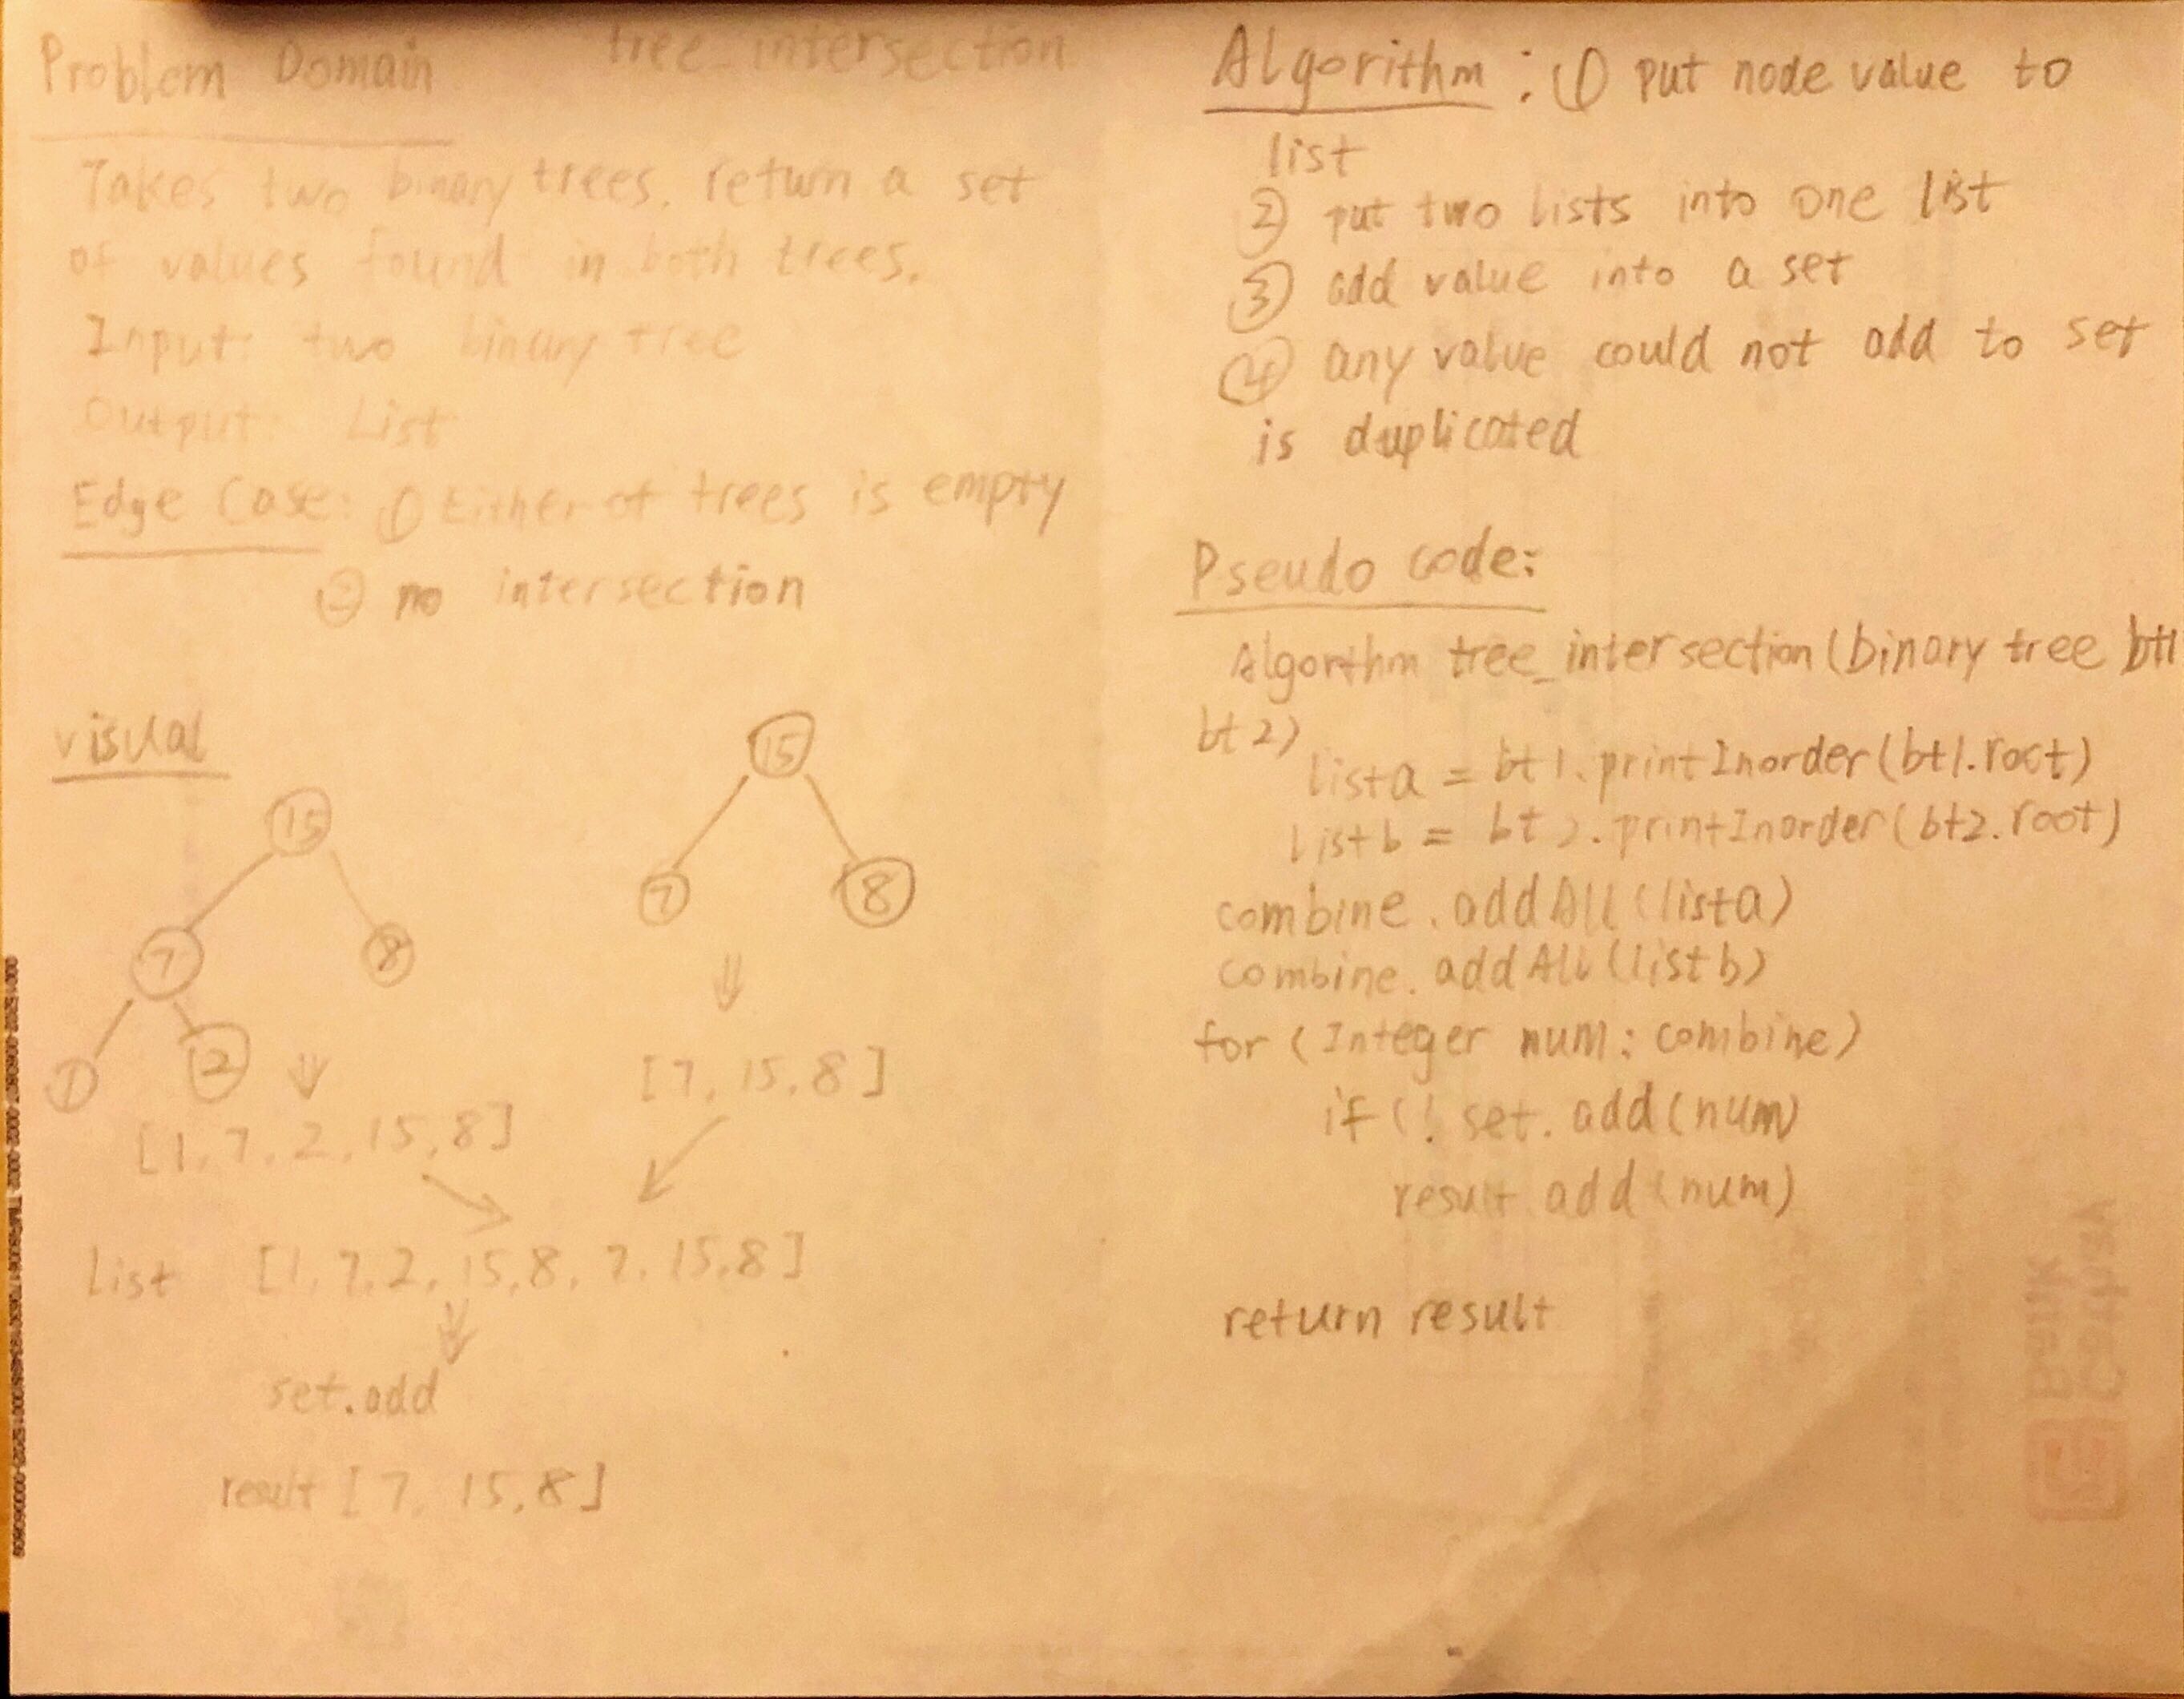 Problem Domain
tree_intersection
Takes two binary trees. return a set
of values found in both trees.
Input: two binary tree
Output: List
Edge Case: ① Either of trees is empty
② no intersection
visual
15
7
8
1
2
[1, 7, 2, 15, 8]
15
7
8
[7, 15, 8]
List [1, 7, 2, 15, 8, 7, 15, 8]
set.add
result [7, 15, 8]
Algorithm: ① put node value to
list
② put two lists into one list
③ add value into a set
④ any value could not add to set
is duplicated
Pseudo code:
Algorthm tree_intersection (binary tree bt1
bt2)
lista = bt1.printInorder(bt1.root)
listb = bt2.printInorder(bt2.root)
combine.addAll(lista)
combine.addAll(listb)
for (Integer num: combine)
if (! set.add(num)
result.add(num)
return result